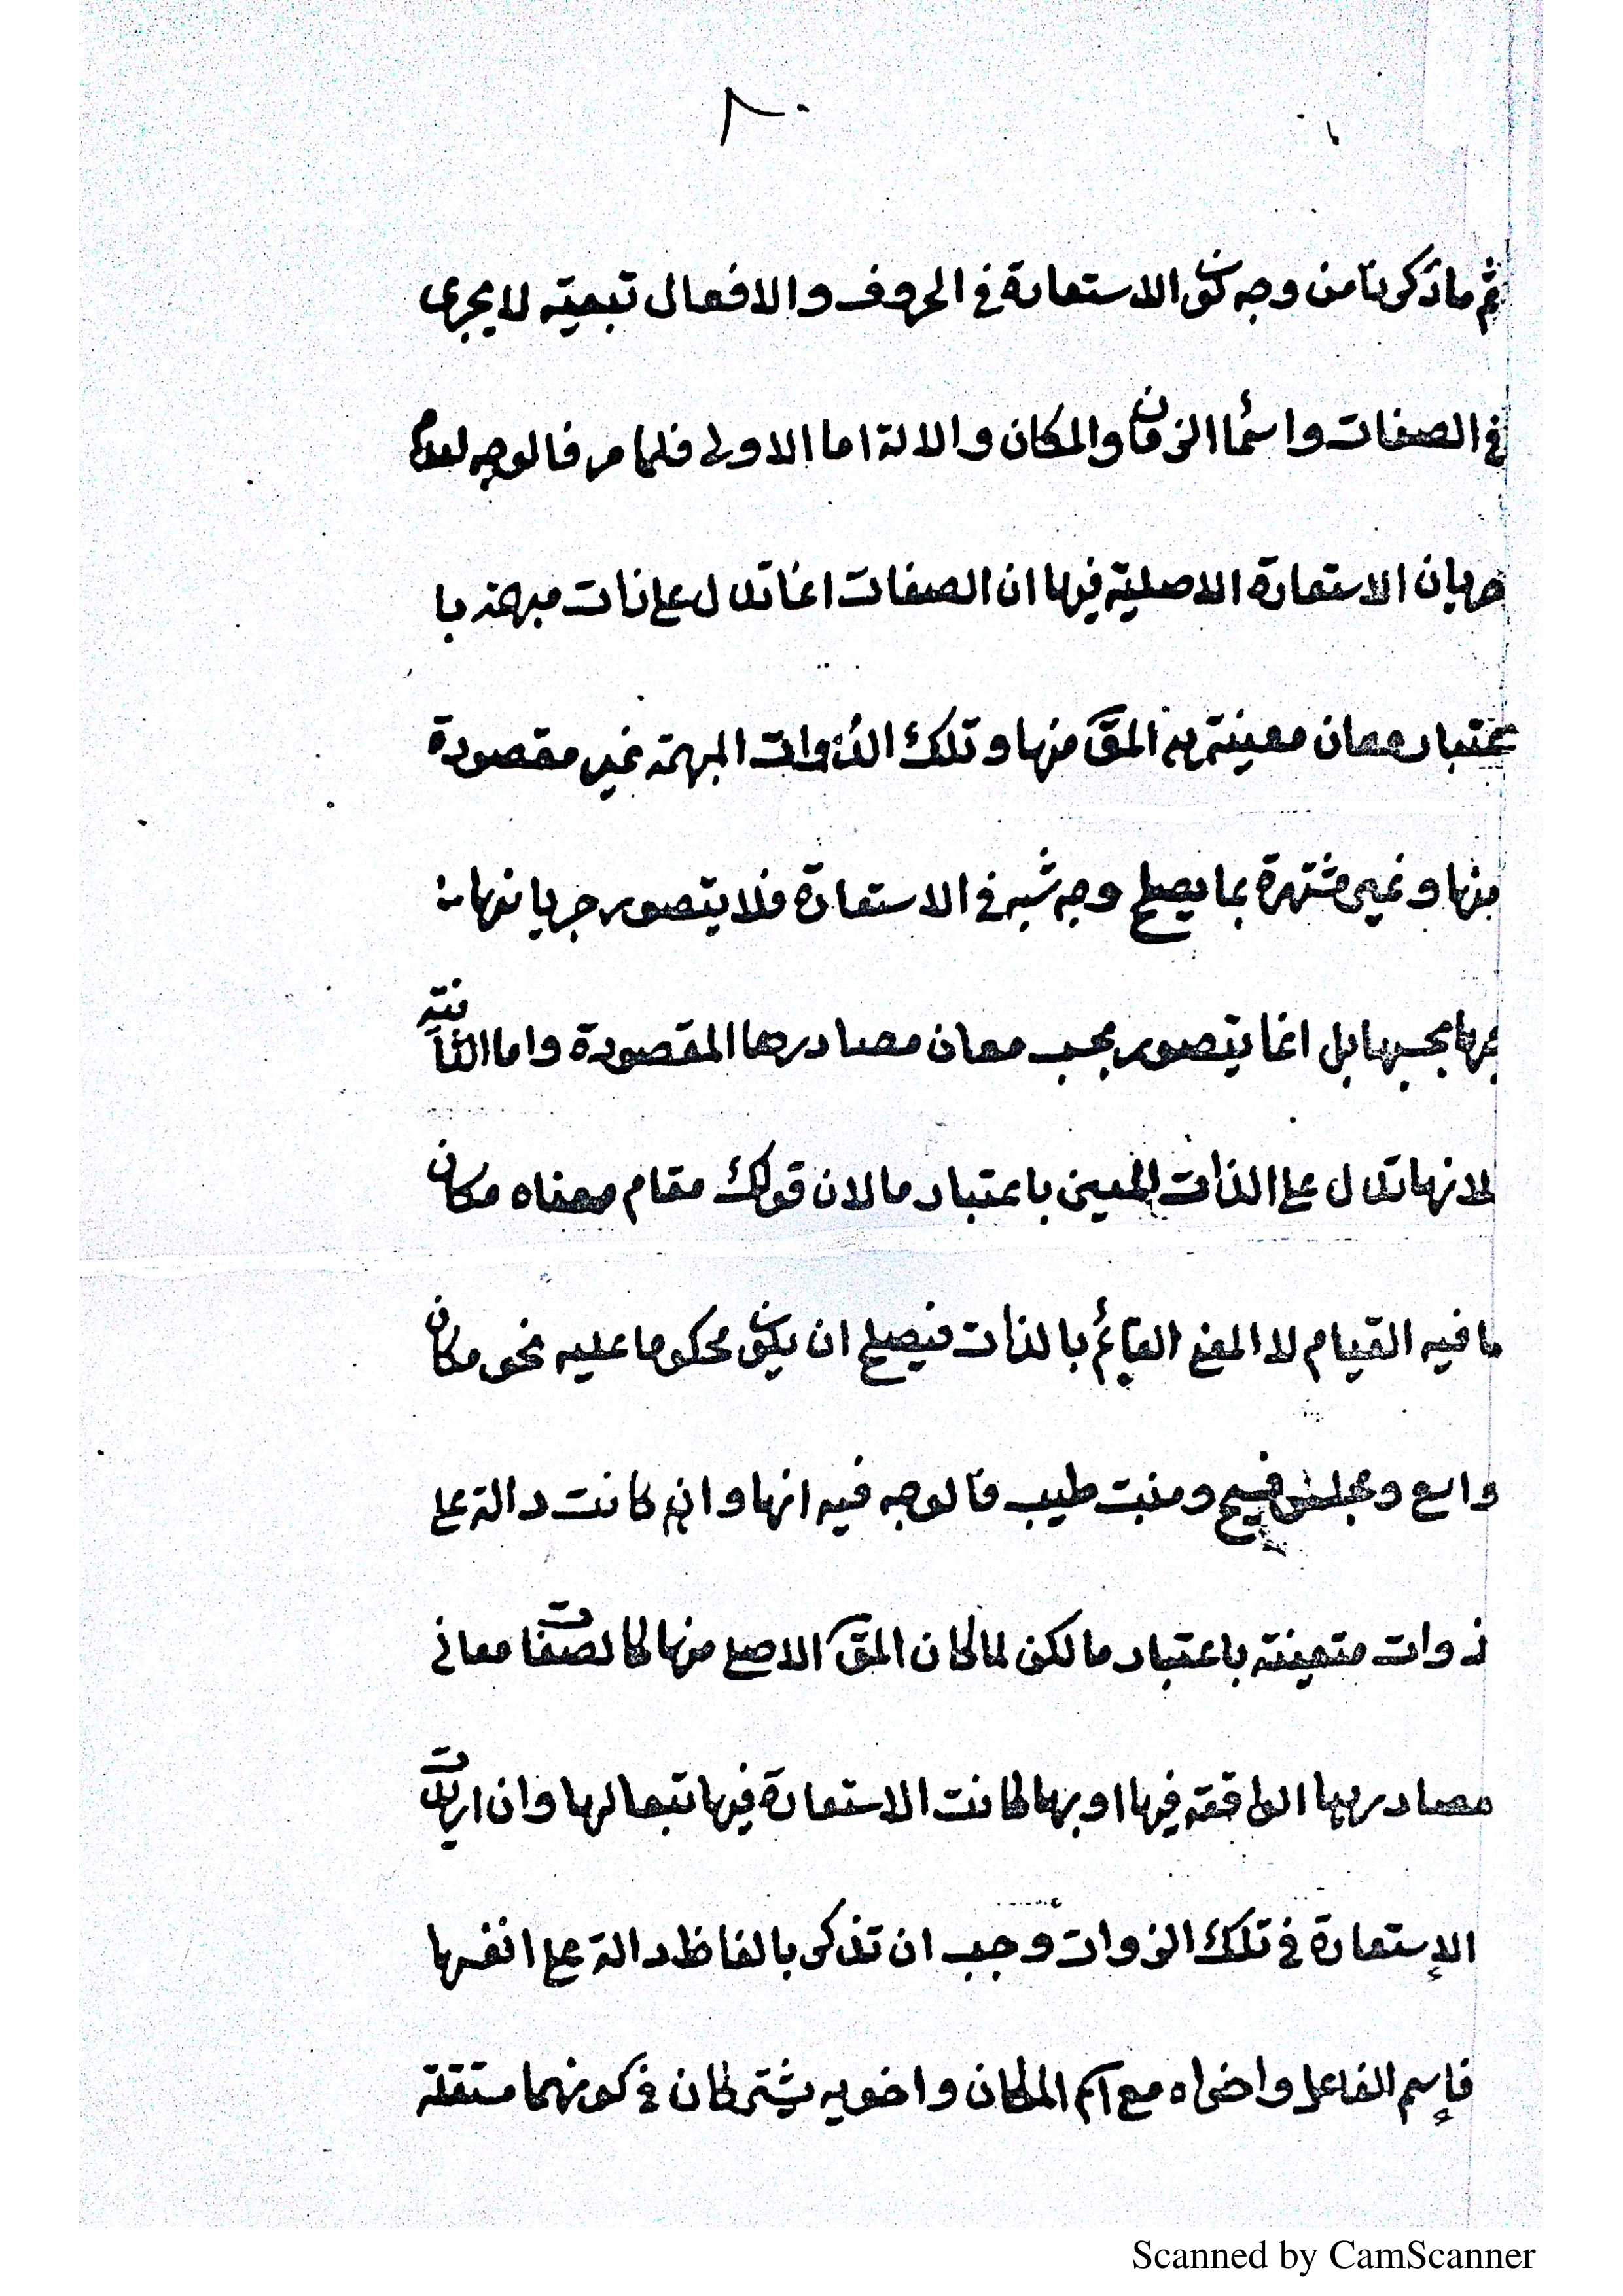 ٨٠
ثم ما ذكرنا من وجه كون الاستعارة في الحروف والافعال تبعية لا يجرى
في الصفات واسما الزمان والمكان والالة اما الاولى فلما مر فالوجه لعدم
جريان الاستعارة الاصلية فيها ان الصفات انما تدل على ذات مبهمة با
عتبار معان معينة هي المق منها وتلك الذوات المبهمة غير مقصودة
منها وغير مشتهرة بما يصلح وجه شبه في الاستعارة فلا يتصور جريانها
بحسبها بل انما يتصور بحسب معان مصادرها المقصودة واما الثانية
لانها تدل على الذات المعين باعتبار ما لان قولك مقام معناه مكان
ما فيه القيام لا المعنى القائم بالذات فيصلح ان يكون محكوما عليه نحو مكان
واسع ومجلس فسيح ومنبت طيب فالوجه فيه انها وان كانت دالة على
ذوات متعينة باعتبار ما لكن لما كان المق الاصلى منها كالصفات معانى
مصادرها الواقعة فيها او بها كانت الاستعارة فيها تبعا لها وان اريدت
الإستعارة في تلك الذوات وجب ان تذكر بالفاظ دالة على انفسها
فإسم الفاعل واخواه مع اسم المكان واخويه يشتركان في كونهما مستقة
Scanned by CamScanner